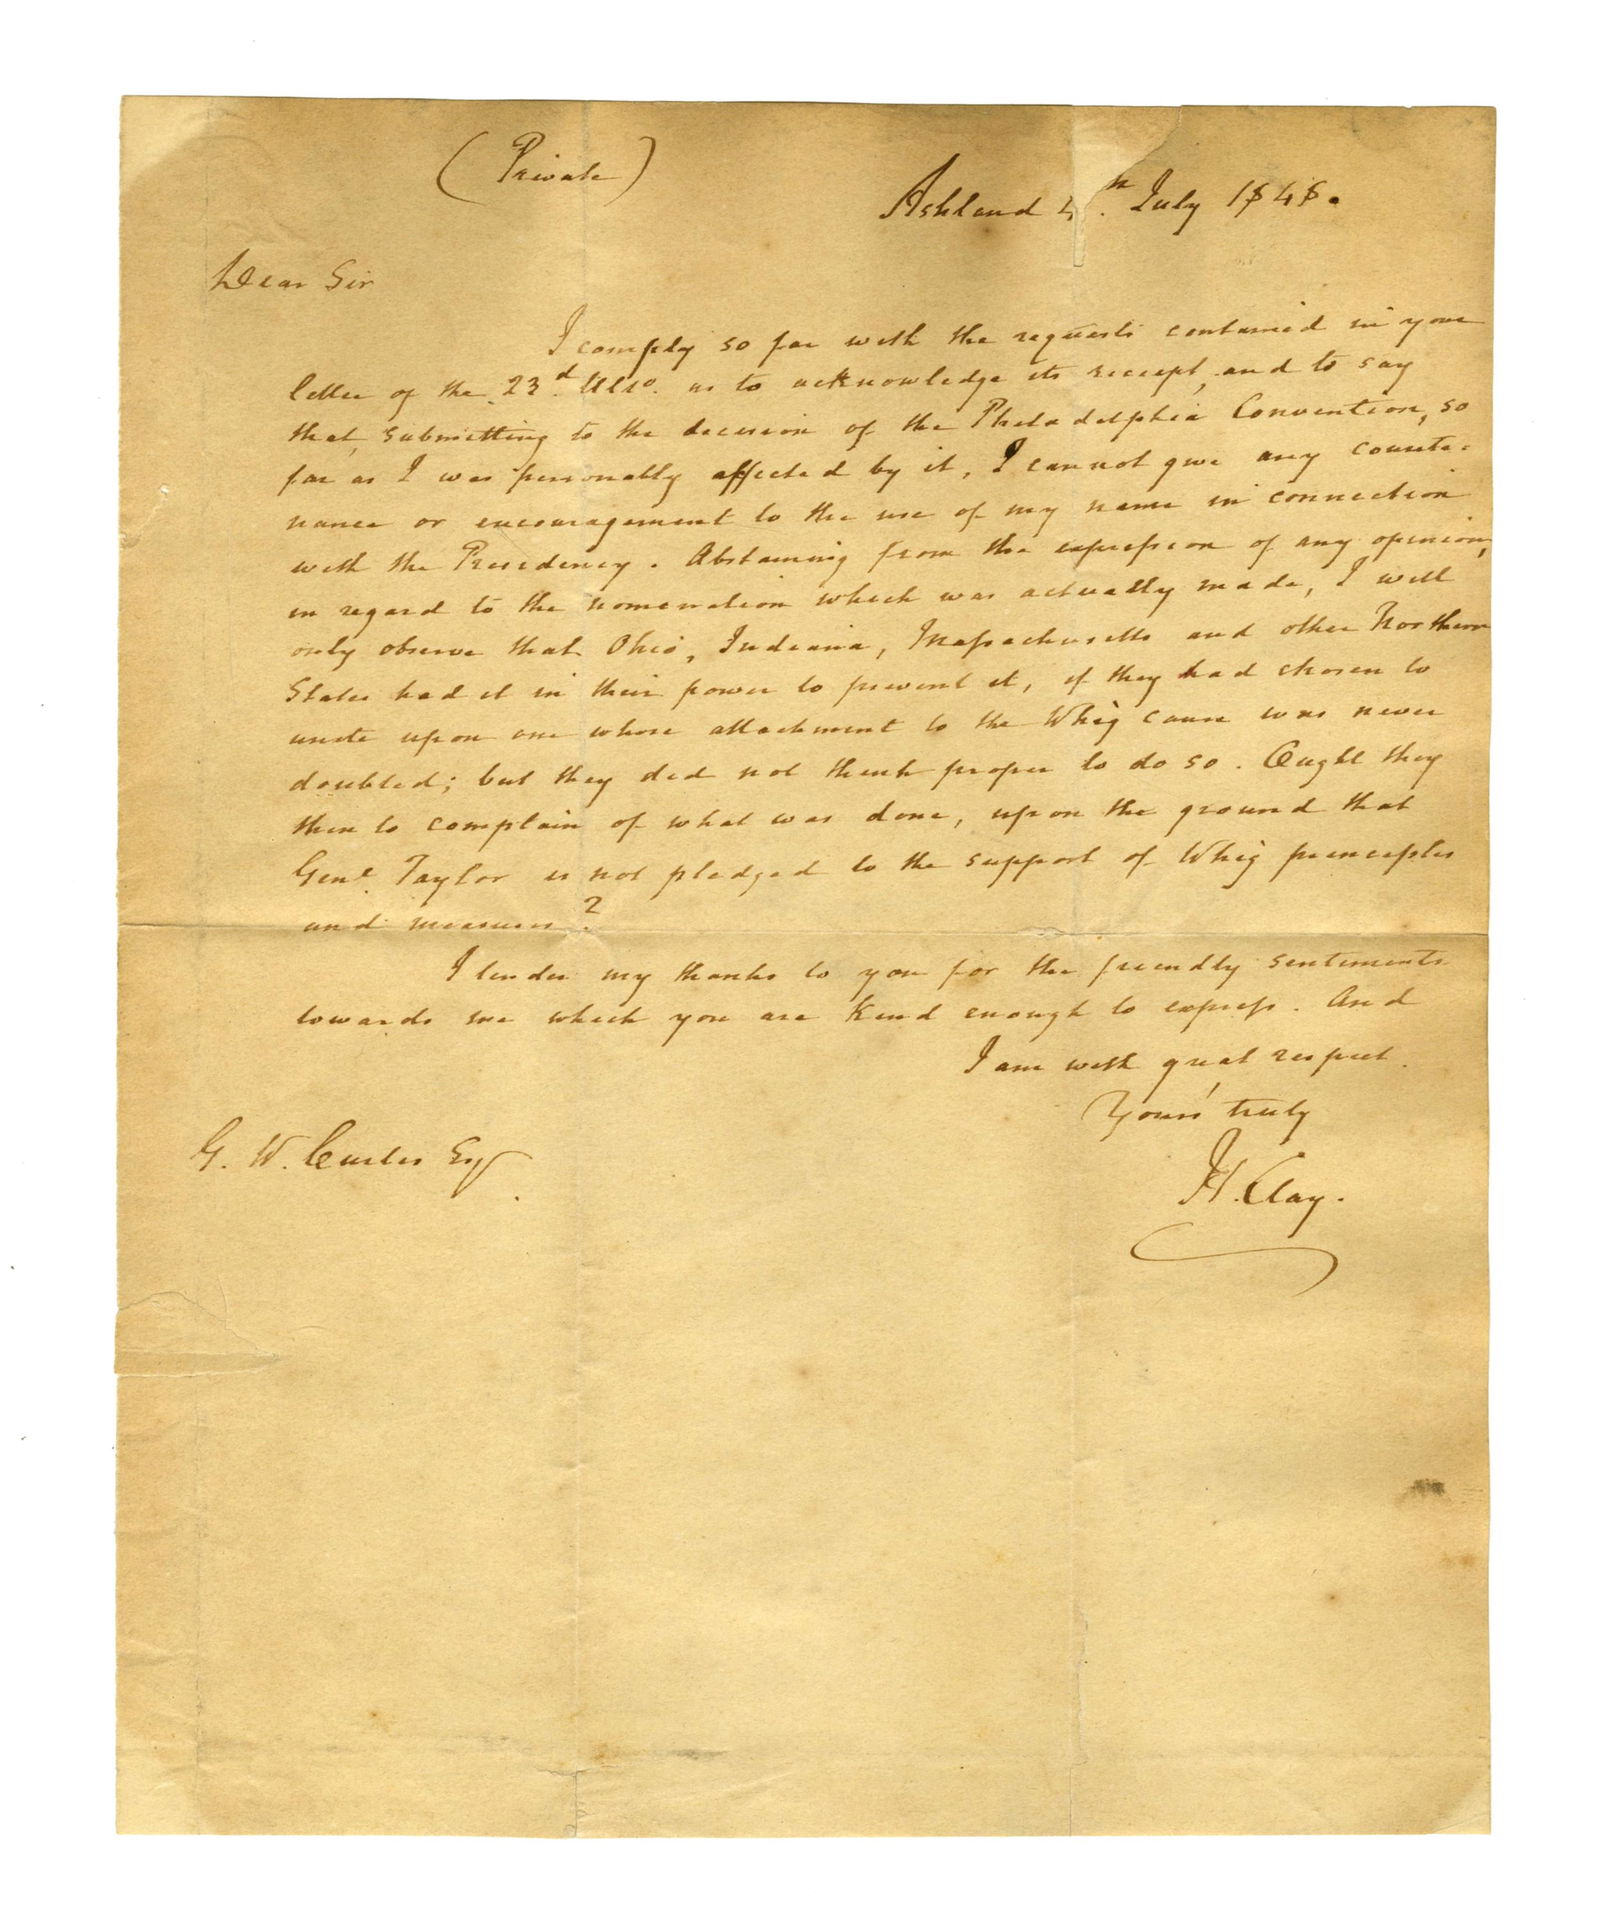 (Private)
Ashland 4th. July 1848.
Dear Sir
I comply so far with the requests contained in your
letter of the 23d. Ulto. as to acknowledge its receipt, and to say
that, submitting to the decision of the Philadelphia Convention, so
far as I was personally affected by it, I cannot give any counte-
nance or encouragement to the use of my name in connection
with the Presidency. Abstaining from the expression of any opinion,
in regard to the nomination which was actually made, I will
only observe that Ohio, Indiana, Massachusetts and other Northern
States had it in their power to prevent it, if they had chosen to
unite upon one whose attachment to the Whig cause was never
doubted; but they did not think proper to do so. Ought they
then to complain of what was done, upon the ground that
Genl. Taylor is not pledged to the support of Whig principles
and measures?
I tender my thanks to you for the friendly sentiments
towards me which you are kind enough to express. And
I am with great respect.
Yours truly
H. Clay.
G. W. Curtis Esq